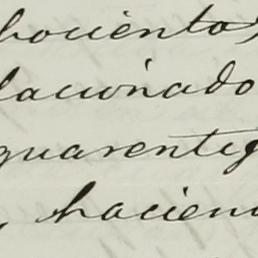 bociento,
lacionado
quarentig
, hacien